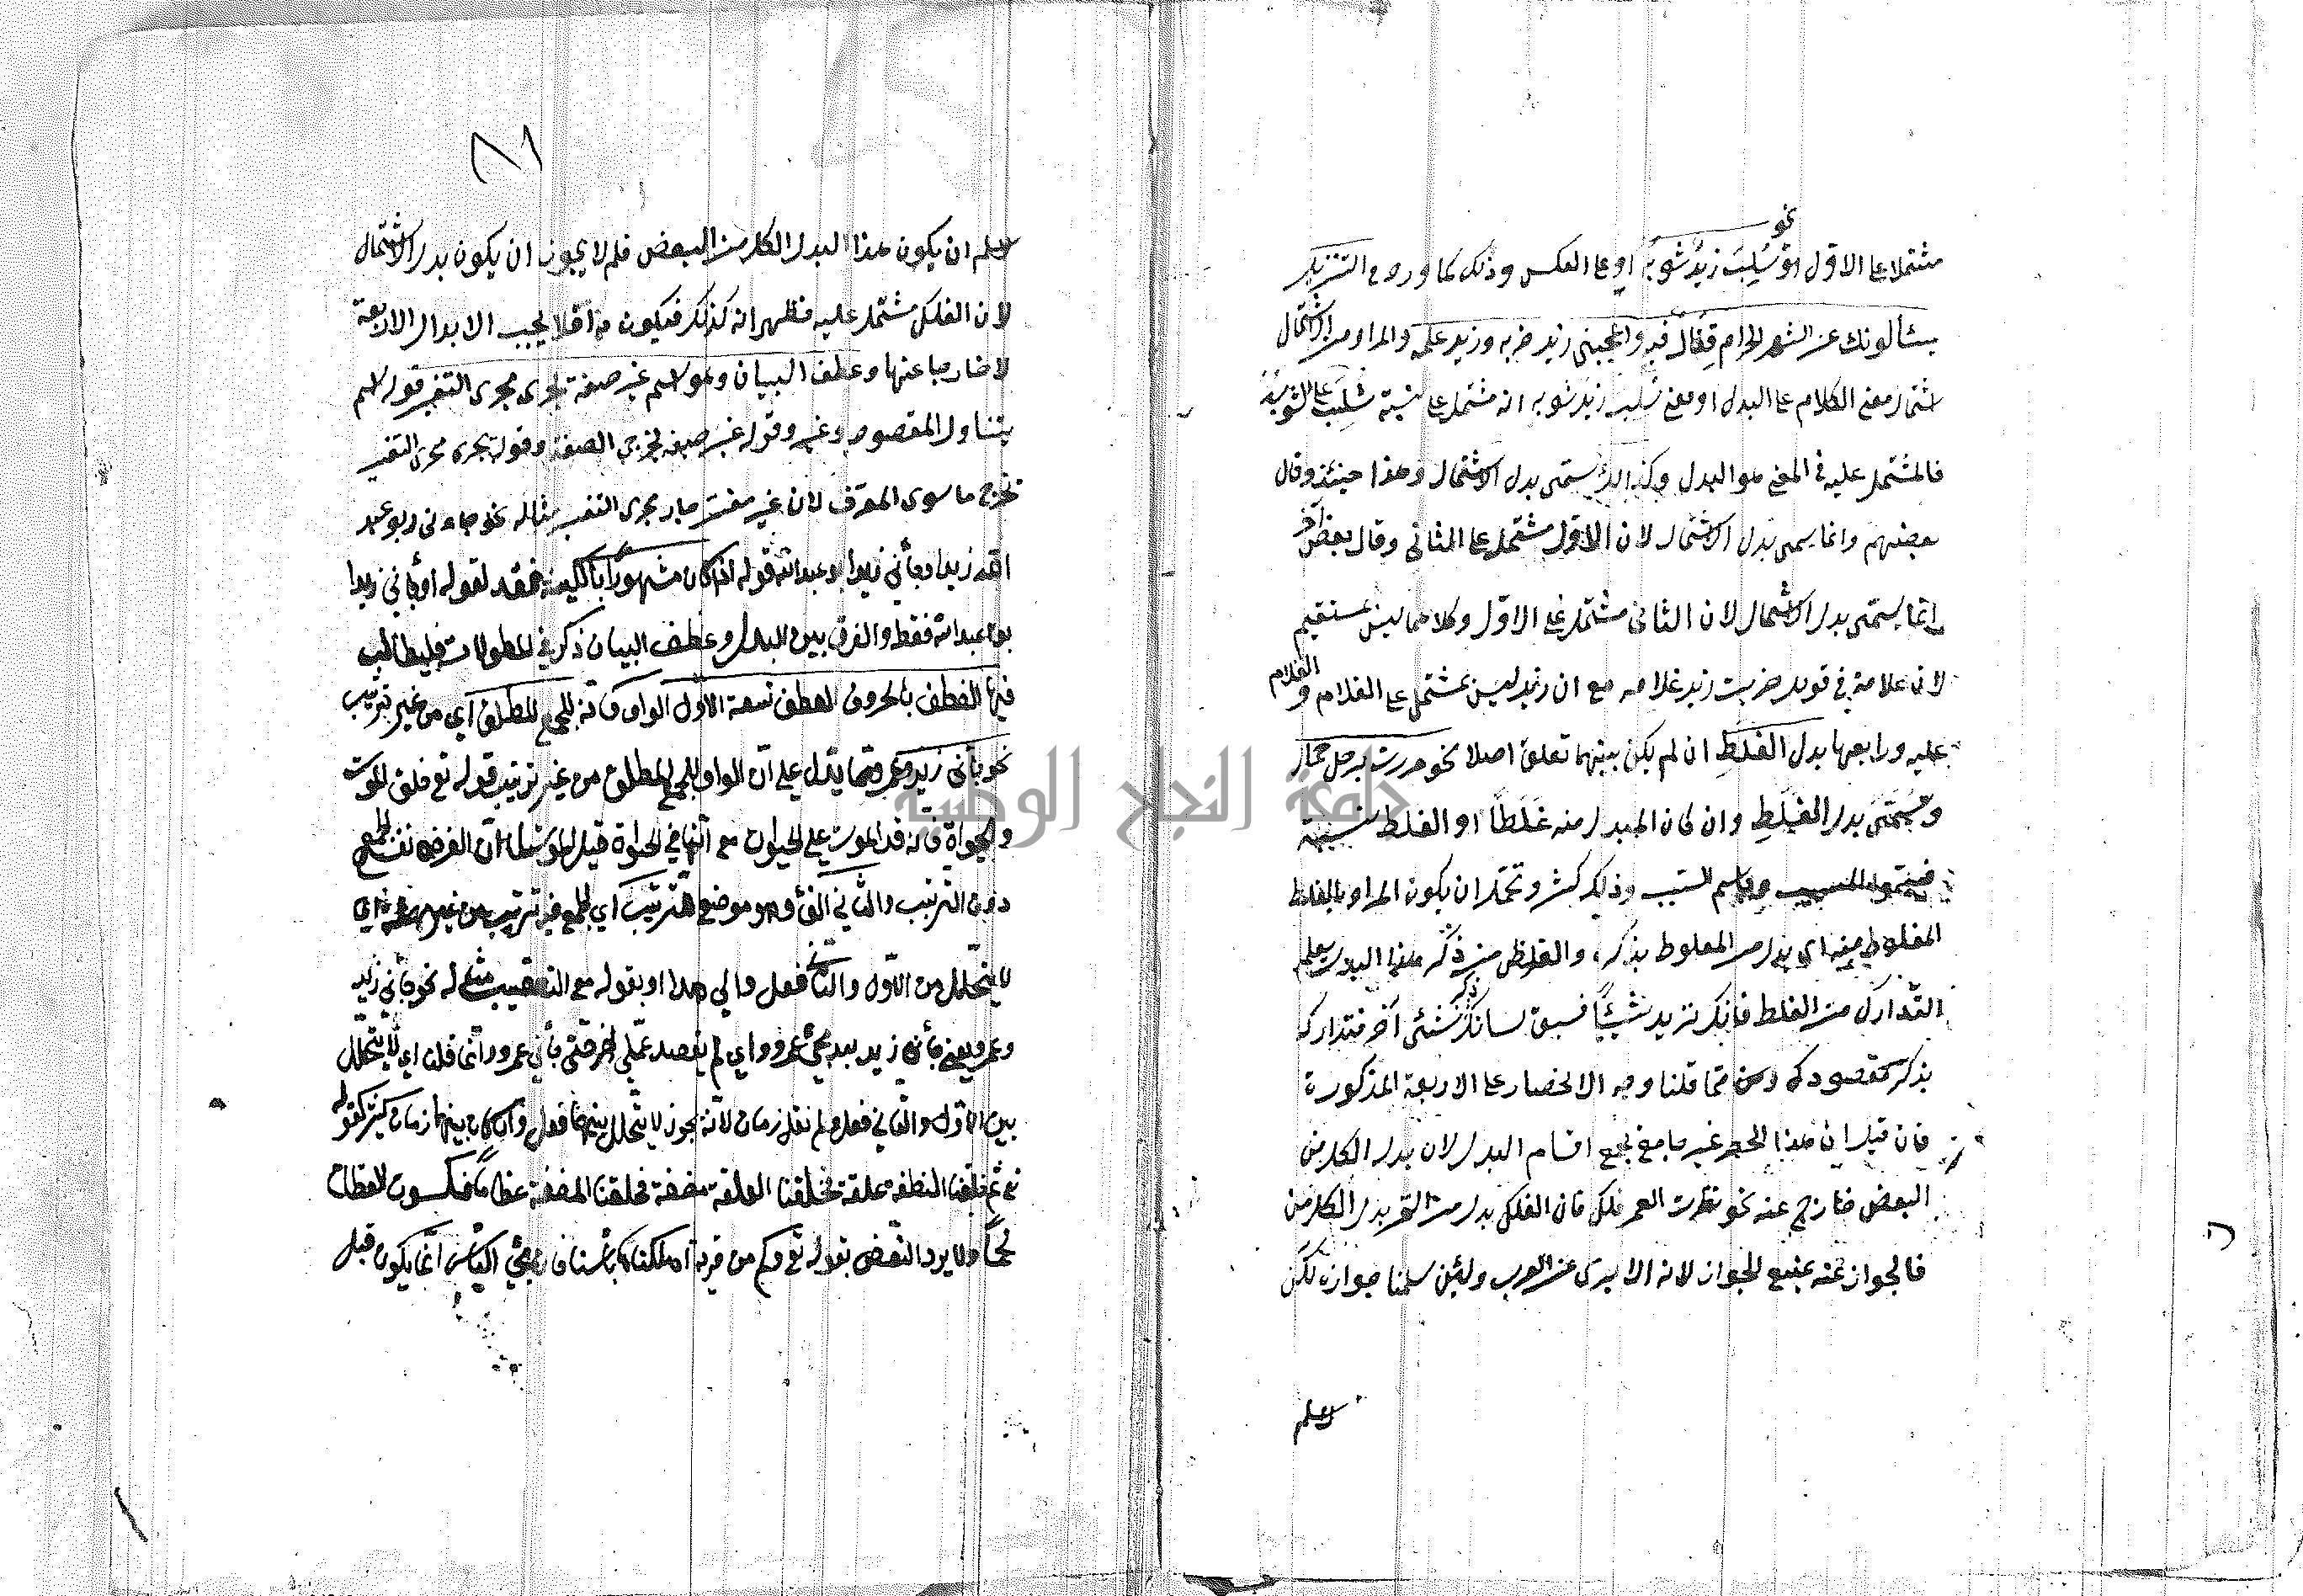 نحو
مشتملا على الاول نحو سُلِبَ زيدٌ ثوبُه او على العكس وذلك كما ورد في التنزيل
يسألونك عن الشهر الحرام قتالٍ فيه واعجبني زيد ضربه وزيد علمه والمراد من الاشتمال
اشتمال معنى الكلام على البدل اذ معنى سُلب زيد ثوبه انه مشتمل على نسبة سُلِبَ على الثوب
فالمشتمل عليه في المعنى هو البدل وكذا يسمى بدل الاشتمال وهذا حينئذ وقال
بعضهم وانما يسمى بدل الاشتمال لان الاول مشتمل على الثاني وقال بعض آخر
انما يسمى بدل الاشتمال لان الثاني مشتمل على الاول وكلاهما ليس بمستقيم
لان غلامه في قولك ضربت زيد غلامه مع ان زيد ليس بمشتمل على الغلام و الغلام
عليه ورابعها بدل الغلط ان لم يكن بينهما تعلق اصلا نحو مررت برجل حمار
ويُسَمّى بدل الغَلَطِ وان كان المبدل منه غَلَطًا او الغلط سببه
فسموا المسبب باسم السبب وذلك كثير وتحمل ان يكون المراد بالغلط
المغلوط فيه اي بدل من المغلوط بذكره والغلط من ذكر هذا البدل يعلم
التدارك من الغلط فانك تريد شيئًا فسبق لسانك ذكر شئ آخر فتداركه
بذكر مقصودك ومن مما قلنا وجه الانحصار على الاربعة المذكورة
فان قيل ان هذا الحصر غير جامع لجميع اقسام البدل لان بدل الكل من
البعض خارج عنه نحو نظرت القمر فلكه فان الفلك بدل من القمر بدل الكل من
فالجواز عنه بمنع الجواز لانه لا يرى عن العرب ولئن سلمنا جوازه لكن
لانسلم
لانسلم ان يكون هذا البدل الكل من البعض فلم لا يجوز ان يكون بدل الاشتمال
لان الفلك مشتمل عليه فظهر انه كذلك فيكون الابدال الاربعة
لا خارجا عنها وعطف البيان وهو اسم غير صفة يجرى مجرى التفسير قوله اسم
يتناول المقصود وغيره وقوله غير صفة يخرج الصفة وقوله يجرى مجرى التفسير
يخرج ما سوى المعرف لان غير مفسر جار مجرى التفسير مثاله نحو جاءني ابو عبد
الله زيد وجأني زيد ابو عبد الله قوله اذا كان مشهورًا بالكنية فقد لقوله او جأني زيد
ابو عبد الله فقط والفرق بين البدل وعطف البيان ذكر في المطولات فليطالب
فيها العطف بالحروف العطف تسعة الاول الواو فانه للجمع المطلق اي من غير ترتيب
نحو جأني زيد وعمرو ومما يدل على ان الواو للجمع المطلق من غير ترتيب قوله تع خلق الموت
والحيوة فانه قدم الموت على الحيوة مع انها في الحيوة قبل الموت لان الغرض نفس الجمع
دون الترتيب والثاني الفاء وهو موضع للترتيب اي للجمع فيه ترتيب من غير مهلة اي
لا يتخلل من الاول والثاني فعل والى هذا او بقوله مع التعقيب مثاله نحو جأني زيد
وعمرو يعني جأني زيد بعد مجئ عمرو اي لم يقصد عملي آخر حتى جأني عمرو وانما قلنا اي لا يتخلل
بين الاول والثاني فعل ولم نقل زمان لانه يجوز لا يتخلل بينهما فعل وان كان بينهما زمان كثير كقوله
تع ثم خلقنا النطفة علقة فخلقنا العلقة مضغة فخلقنا المضغة عظامًا فكسونا العظام
لحمًا ولا يرد النقض بقوله تع وكم من قرية اهلكناها فجأها بأسنا فان مجئ البأس انما يكون قبل
جامعة النجاح الوطنية